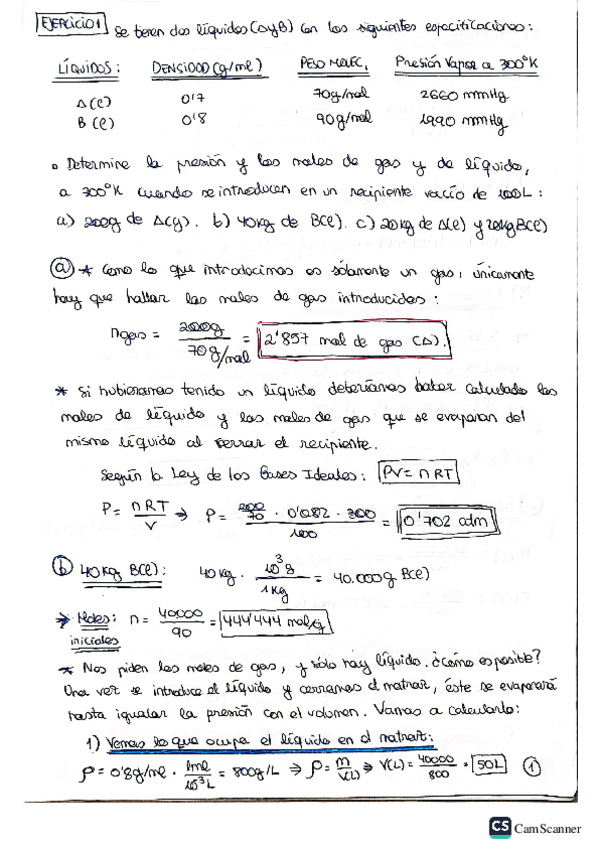 EJERCICIO 1 Se tienen dos líquidos (A y B) con las siguientes especificaciones:
LÍQUIDOS: DENSIDAD (g/ml) PESO MOLEC. Presión Vapor a 300°K
A(l) 0'7 70g/mol 2660 mmHg
B(l) 0'8 90g/mol 1990 mmHg
• Determine la presión y los moles de gas y de líquido,
a 300°K cuando se introducen en un recipiente vacío de 100L:
a) 200g de A(g). b) 40Kg de B(l). c) 20Kg de A(l) y 20Kg B(l)
a) * Como lo que introducimos es sólamente un gas, únicamente
hay que hallar los moles de gas introducidos:
ngas = 200g / 70g/mol = 2'857 mol de gas (A).
* Si hubieramos tenido un líquido deberíamos haber calculado los
moles de líquido y los moles de gas que se evaporan del
mismo líquido al cerrar el recipiente.
Según la Ley de los Gases Ideales: PV = nRT
P = nRT / V → P = 200/70 · 0'082 · 300 / 100 = 0'702 adm
b) 40Kg B(l): 40Kg · 10³g / 1Kg = 40.000g B(l)
→ Moles iniciales: n = 40000 / 90 = 444'444 mol
* Nos piden los moles de gas, y sólo hay líquido. ¿Cómo es posible?
Una vez se introduce el líquido y cerramos el matraz, éste se evaporará
hasta igualar la presión con el volumen. Vamos a calcularlo:
1) Vemos lo que ocupa el líquido en el matraz:
ρ = 0'8g/ml · 1ml / 10⁻³L = 800g/L ⇒ ρ = m / V(L) ⇒ V(L) = 40000 / 800 = 50L 1
CS CamScanner